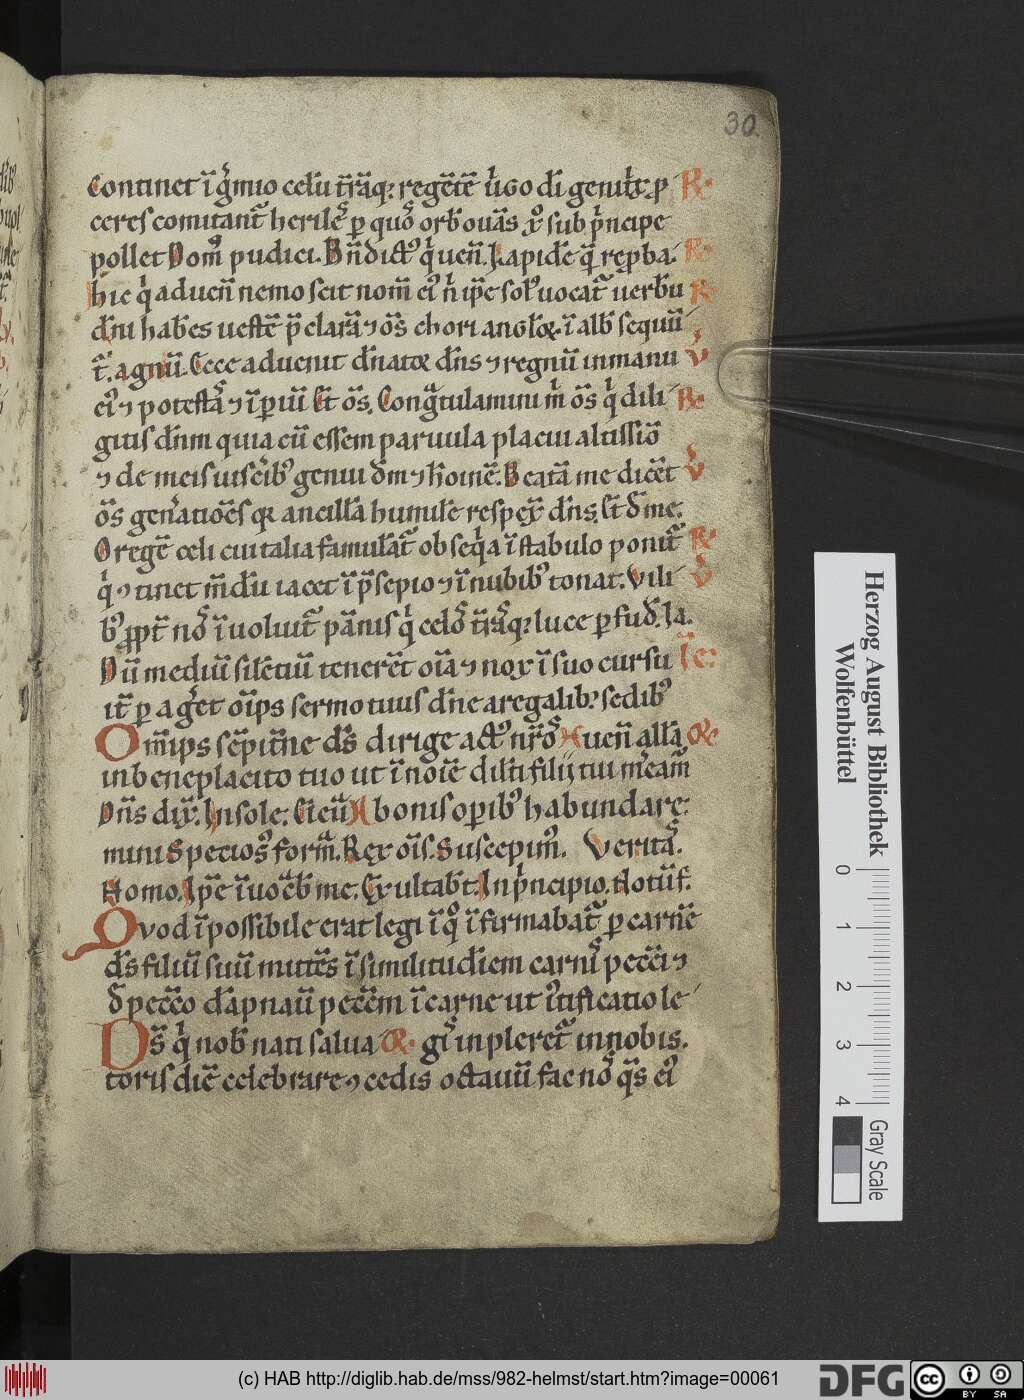 30.
Continet ī g̃mio celū t̃rāq; regētē ṽgo dī genitx̃. p R̃.
ceres comitant̃ herilẽ p quō orb ouās x̃ sub p̃ncipe
pollet Dom̃ pudici. Bñdict᷒ q̃ ueñ. Lapidē q̃ rep̱ba. R̃.
hic q̃ adueñ nemo scit nom̃ ei᷒ n̄ ip̃e sol᷒ uocat̃ uerbū R̃
dñi hab̃es uestē p̃clarā ⁊ ōs chori angl̃oꝝ. ī alb̃ sequū
t̃. agnū. Ecce aduenit dñatoꝝ dñs ⁊ regnū inmanu ṽ
ei᷒ ⁊ potestā ⁊ īperiū Et ōs. Congr̃tulamini m̃ ōs q̃ dili R̃
gitis dñm quia cū essem paruula placui altissiō
⁊ de meis uisc̃ib᷒ genui dm̃ ⁊ hōinē. Beatā me dicēt ṽ
ōs gen̄atiōes qꝛ ancillā humilē respex̃ dñs. Et d̄ me.
O regē celi cui talia famulat̃ obseq̃a ī stabulo ponit̃ R̃
q̃ ↄtinet m̄dū iacet ī p̃sepio ⁊ ī nubib᷒ tonat. Vili ṽ
b᷒ p̱pt̃ nō īuoluit̃ pānis q̃ celō t̃rāq; luce p̱fud̃. Ja.
Dū mediū silētiū tenerēt oīa ⁊ nox ī suo cursu l̃c:
it̃ p ag̃et oīps sermo tuus dñe aregalib; sedib᷒
Om̄ips sēpit̃ne ds̄ dirige act᷒ nr̃ō ueñ all̃a or̃.
in beneplacito tuo ut ī noīe dil̃ti filij tui m̃eam̃
Dñs dix̃. In sole: Cū eū bonis op̱ib᷒ habundare:
mini Specios᷒ form̃. Rex oīs. Suscepim᷒. Veritā.
Homo. Ip̃e īuoc̃b me. Exultab̃t. In p̃ncipio. Notū f.
Qvod īpossibile erat legi ī q̃ īfirmabat̃ p carnē
ds̄ filiū suū mittēs ī similitudīem carnĩ pecc̃i ⁊
d̄ pecc̃o dāpnauī pecc̃m ī carne ut i᷒tificatio le
Ds̄ q̃ nob̃ nati salua or̃. gĩ inpleret̃ in nobis.
toris diē celebrare ↄcedis octauū fac nō q̃s ei᷒
Herzog August Bibliothek
Wolfenbüttel
0 1 2 3 4
Gray Scale
(c) HAB http://diglib.hab.de/mss/982-helmst/start.htm?image=00061
DFG
cc BY SA